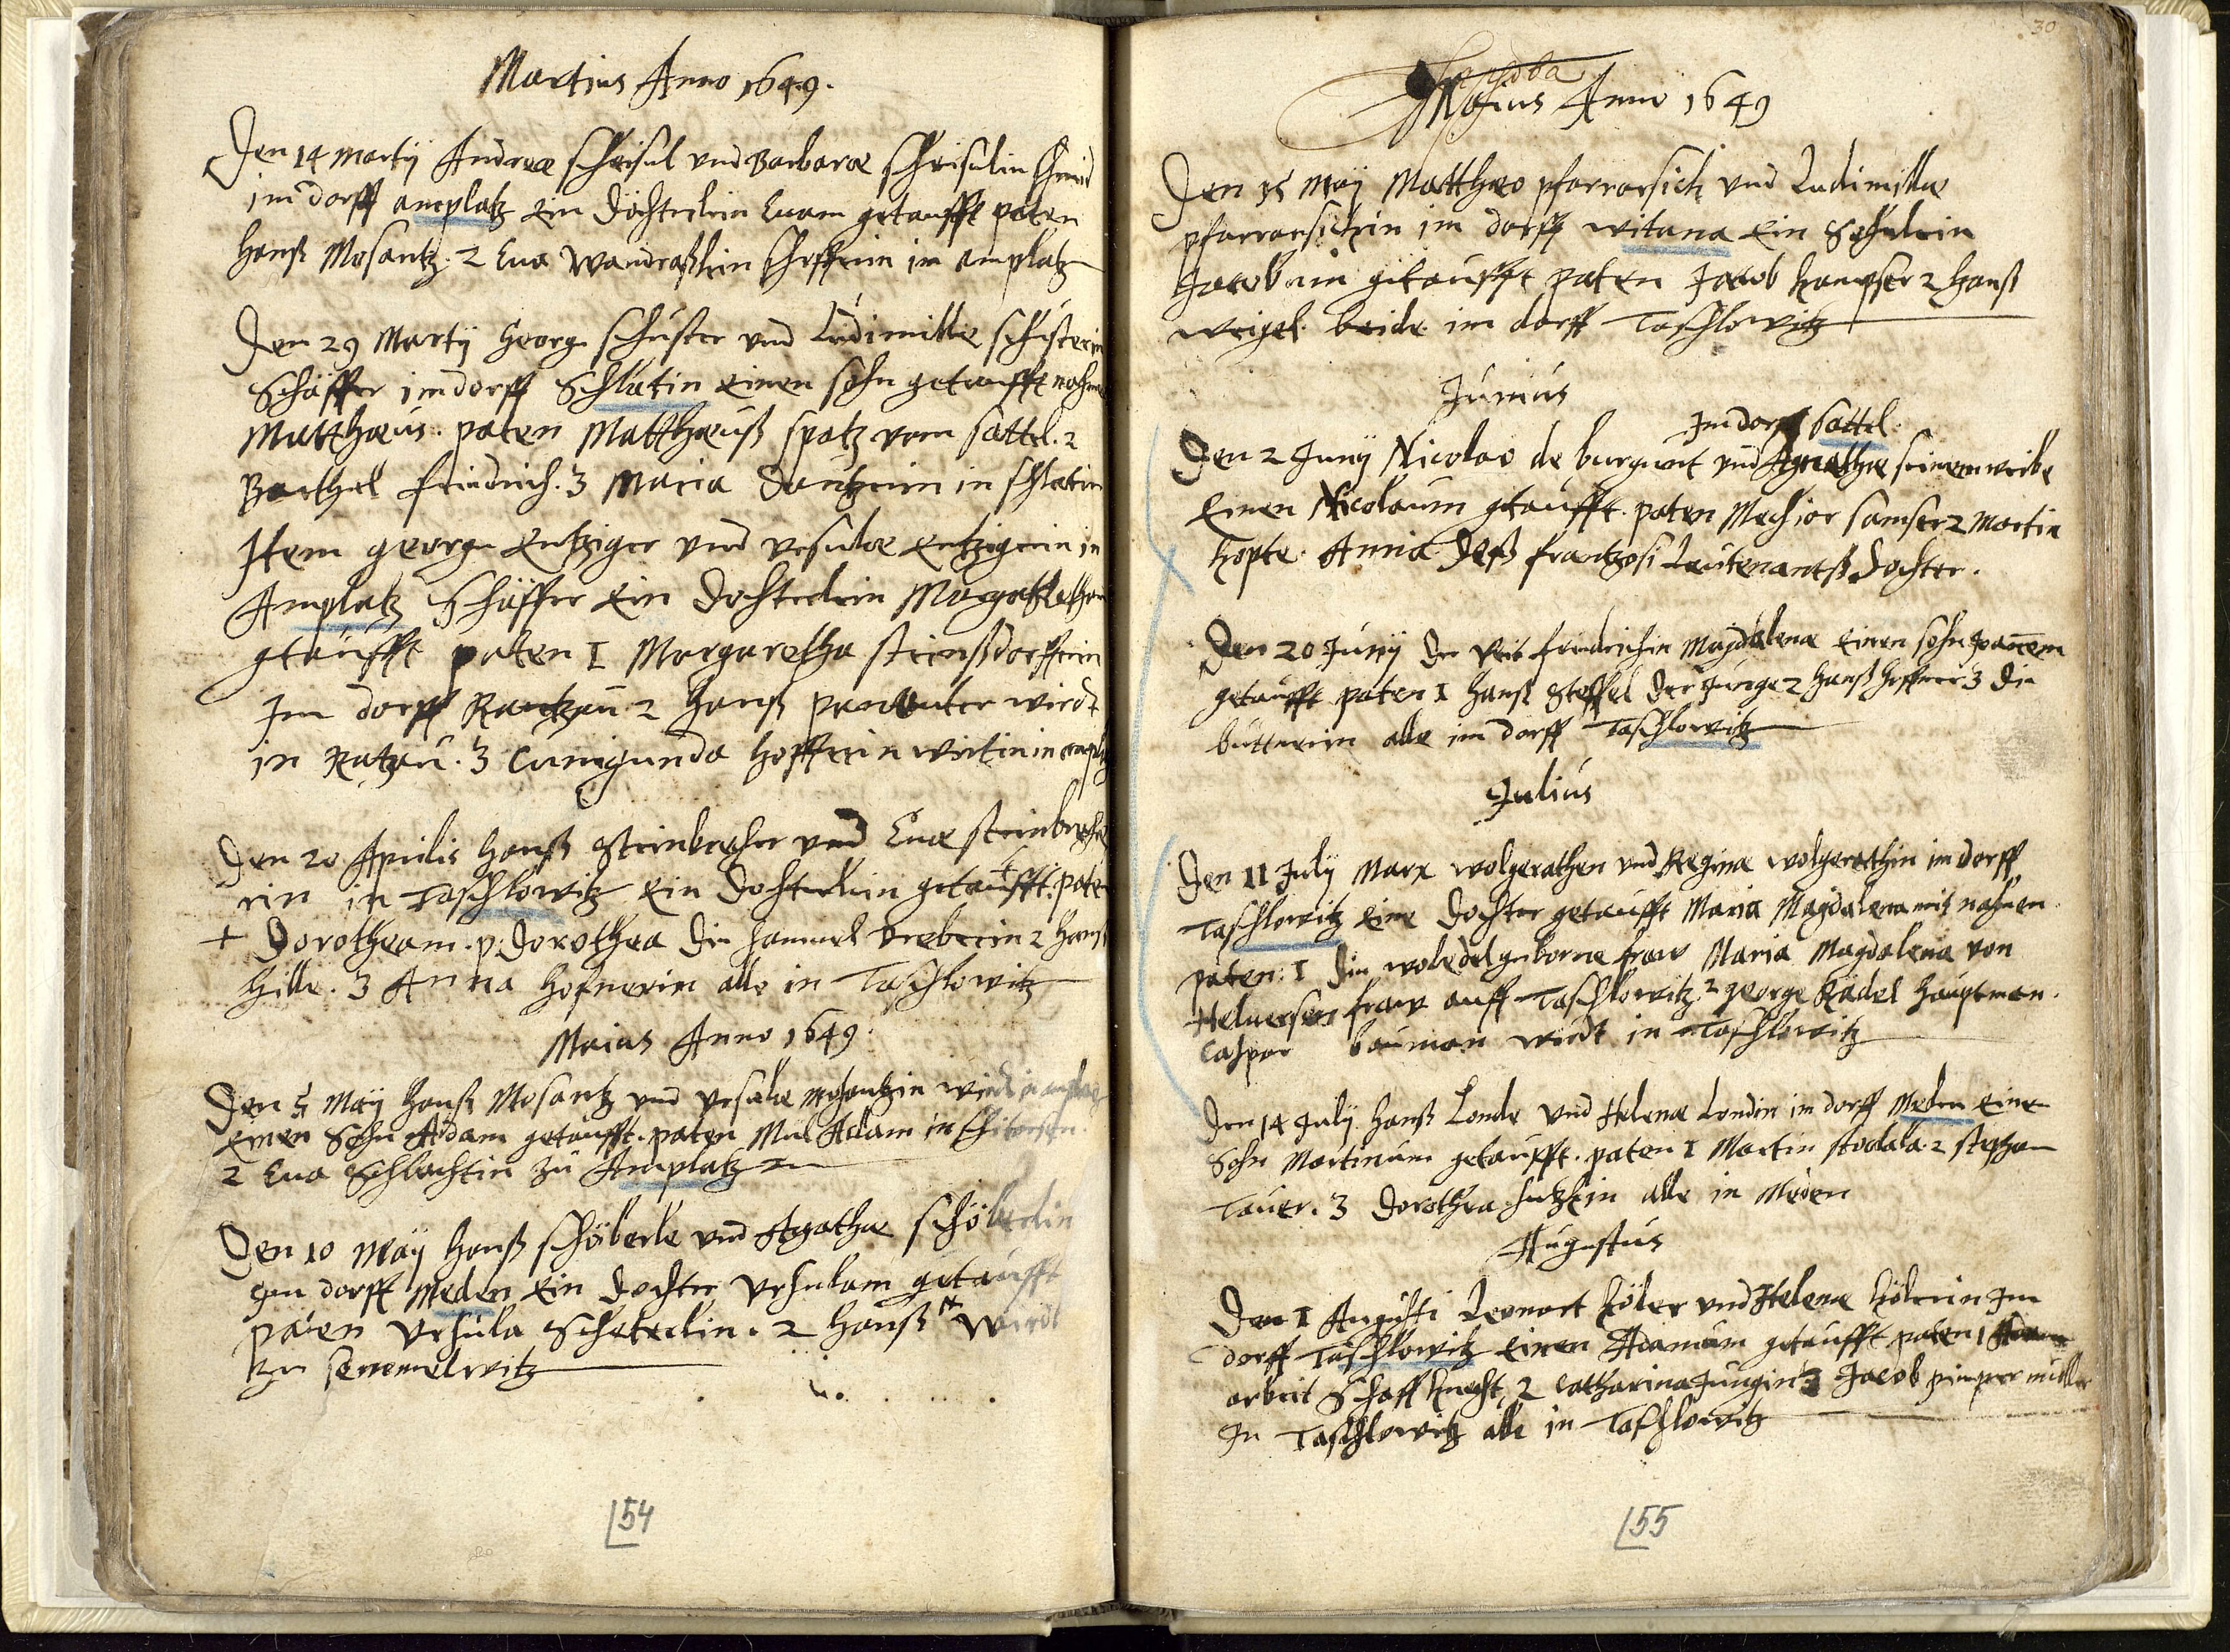 Martius Anno 1649.
Den 14 martij Andreæ scheisul vnd Barbaræ scheisulin schmid
im dorff amplatz ein döchterlein Euam getaufft paten
Hanß Mosantz. 2 Eua Wandraßkin schefferin im amplatz
Den 29 Martij Georg schuster vnd Ludimillæ schusterin
Schäffer im dorff Schlatin einen sohn getaufft nahmen
Matthæus. paten Matthæuß spatz vom sattel. 2
Barthel friedrich. 3 Maria in schlatin
Item georg entziger vnd vrsulæ entzigerin in
Amplatz Schäffer ein dochterlein
getaufft paten 1 Margaretha steinßdorfferin
Im dorff Ratzau 2 Hanß wirdt
in Ratzau. 3 Cunigunda hofferin wirtin in amplatz
Den 20 Aprilis Hanß Steinbrecher vnd Euæ steinbreche
rin in Taschlowitz ein dochterlein getaufft. paten
+ Dorotheam. p: Dorothea die hammel 2 Hanß
Hille. 3 Anna hofnerin alle in Taschlowitz
Maius Anno 1649.
Den 5 Maij Hanß Mosantz vnd vrsulæ Mosantzin wirdt in amplatz
einen Sohn Adam getaufft. paten Adam in
2 Eua Schlachtin zu Amplatz
Den 10 Maij Hanß schöberle vnd Agathæ schöberlin
Im dorff Meden ein dochter Vrsulam getaufft
paten Vrsula Scheterlin. 2 Hanß wirdt
zu semmelwitz
54
30
Maius Anno 1649
Den 15 Maij Matthæo pfarrarsich vnd Ludimillæ
pfarrarsichin im dorff witana ein Sohnlein
Jacobum getaufft paten Jacob 2 Hanß
weigel. beide im dorff Taschlowitz
Junius
Im dorff sattel.
Den 2 Junij Nicolao de burgunt vnd Agnethæ seinem weibe
Einen Nicolaum getaufft. paten Mechior samser 2 Martin
Hopte. Anna deß frantzosi Leutenantß dochter.
Den 20 Junij der friedrichin Magdalenæ einen sohn Joañem
getaufft paten 1 Hanß Stoffel der Junge 2 Hanß hoffner 3 die
buttnerin alle im dorff Taschlowitz
Julius
Den 11 Julij Marx wolgerathen vnd Reginæ wolgerathin im dorff
Taschlowitz eine dochter getaufft Maria Magdalena mit nahmen.
paten: 1 die woledelgeborne fraw Maria Magdalena von
Heluersen fraw auff Taschlowitz. 2 george Rädel Hauptman.
Caspar bauman wirdt in Taschlowitz
Den 14 Julij Hanß Londe vnd Helenæ Londin im dorff Meden einen
Sohn Martinum getaufft. paten 1 Martin stodala. 2 stephan
Tauer. 3 Dorothea alle in Meden
Augustus
Den 1 Augusti Leonart Höler vnd Helenæ Hölerin Im
dorff Taschlowitz einen Adamum getaufft paten 1 Adam
arbeit Schaffknecht, 2 Catharina Jungin 3 Jacob müller
In Taschlowitz alle in Taschlowitz
55